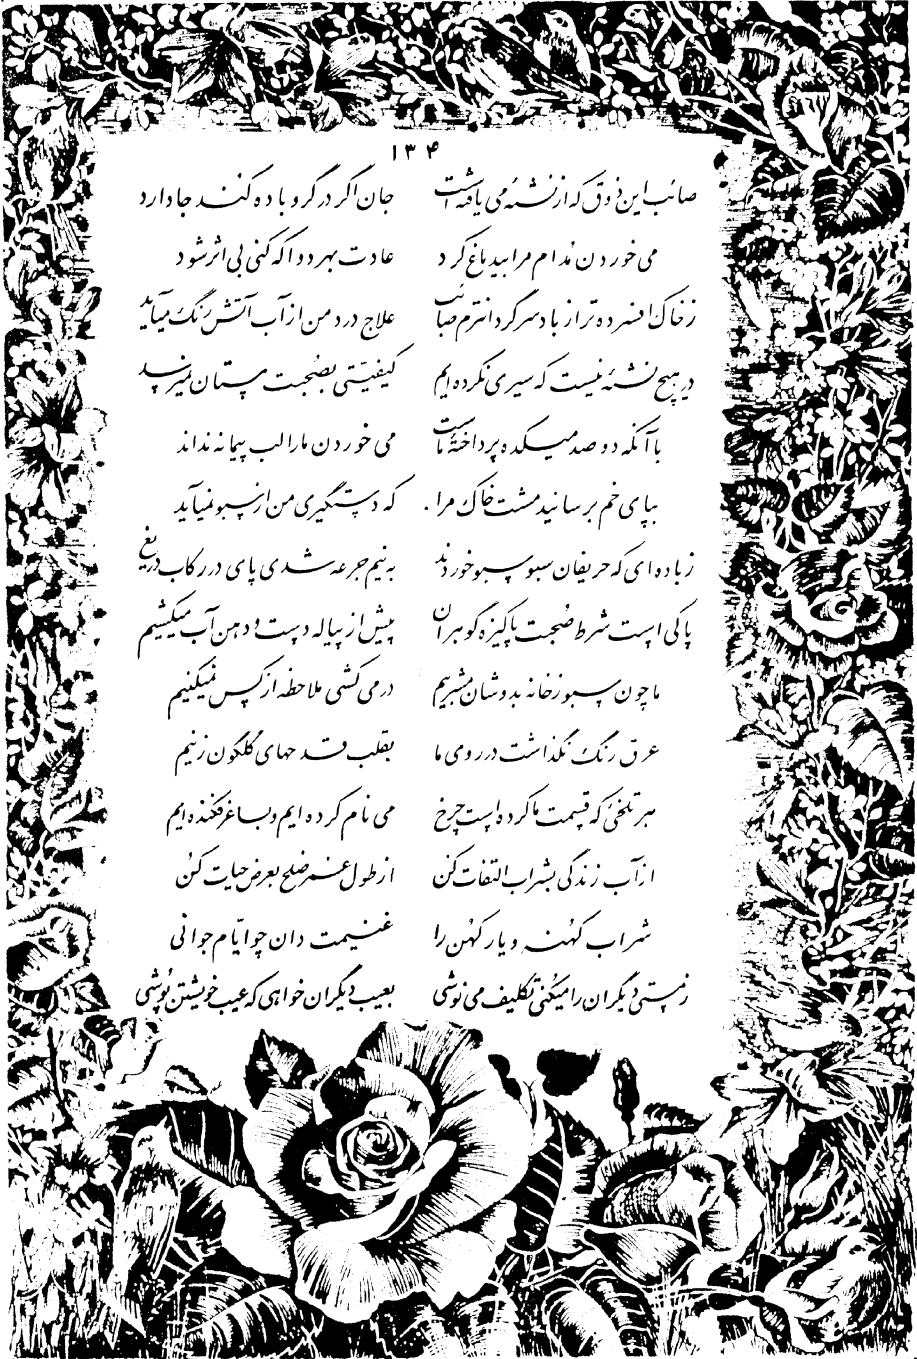 ۱۳۴
صائب این ذوق که از نشئه می یافته است جان اگر در گرو باده کند جا دارد
می خوردن مدام مرا بیدماغ کرد عادت بهر دوا که کنی بی اثر شود
ز خاک افسرده تر از باد سرگردانترم صائب علاج درد من از آب آتش رنگ میآید
در هیچ نشئه نیست که سیری نکرده ایم کیفیتی بصحبت مستان نمیرسد
با آنکه دو صد میکده پرداخته ماست می خوردن ما را لب پیمانه نداند
بپای خم برسانید مشت خاک مرا که دستگیری من از سبو نمیآید
ز باده ای که حریفان سبو سبو خوردند به نیم جرعه شدی پای در رکاب دریغ
پاکی است شرط صحبت پاکیزه گوهران پیش از پیاله دست و دهن آب میکشیم
ما چون سبو ز خانه بدوشان مشربیم در می کشی ملاحظه از کس نمیکنیم
عرق رنگ نگذاشت در روی ما بقلب قدحهای گلگون زنیم
هر تلخئی که قسمت ما کرده است چرخ می نام کرده ایم و بساغر فکنده ایم
از آب زندگی بشراب التفات کن از طول عمر صلح بعرض حیات کن
شراب کهنه و یار کهن را غنیمت دان چو ایام جوانی
ز مستی دیگران را میکنی تکلیف می نوشی بعیب دیگران خواهی که عیب خویشتن پوشی